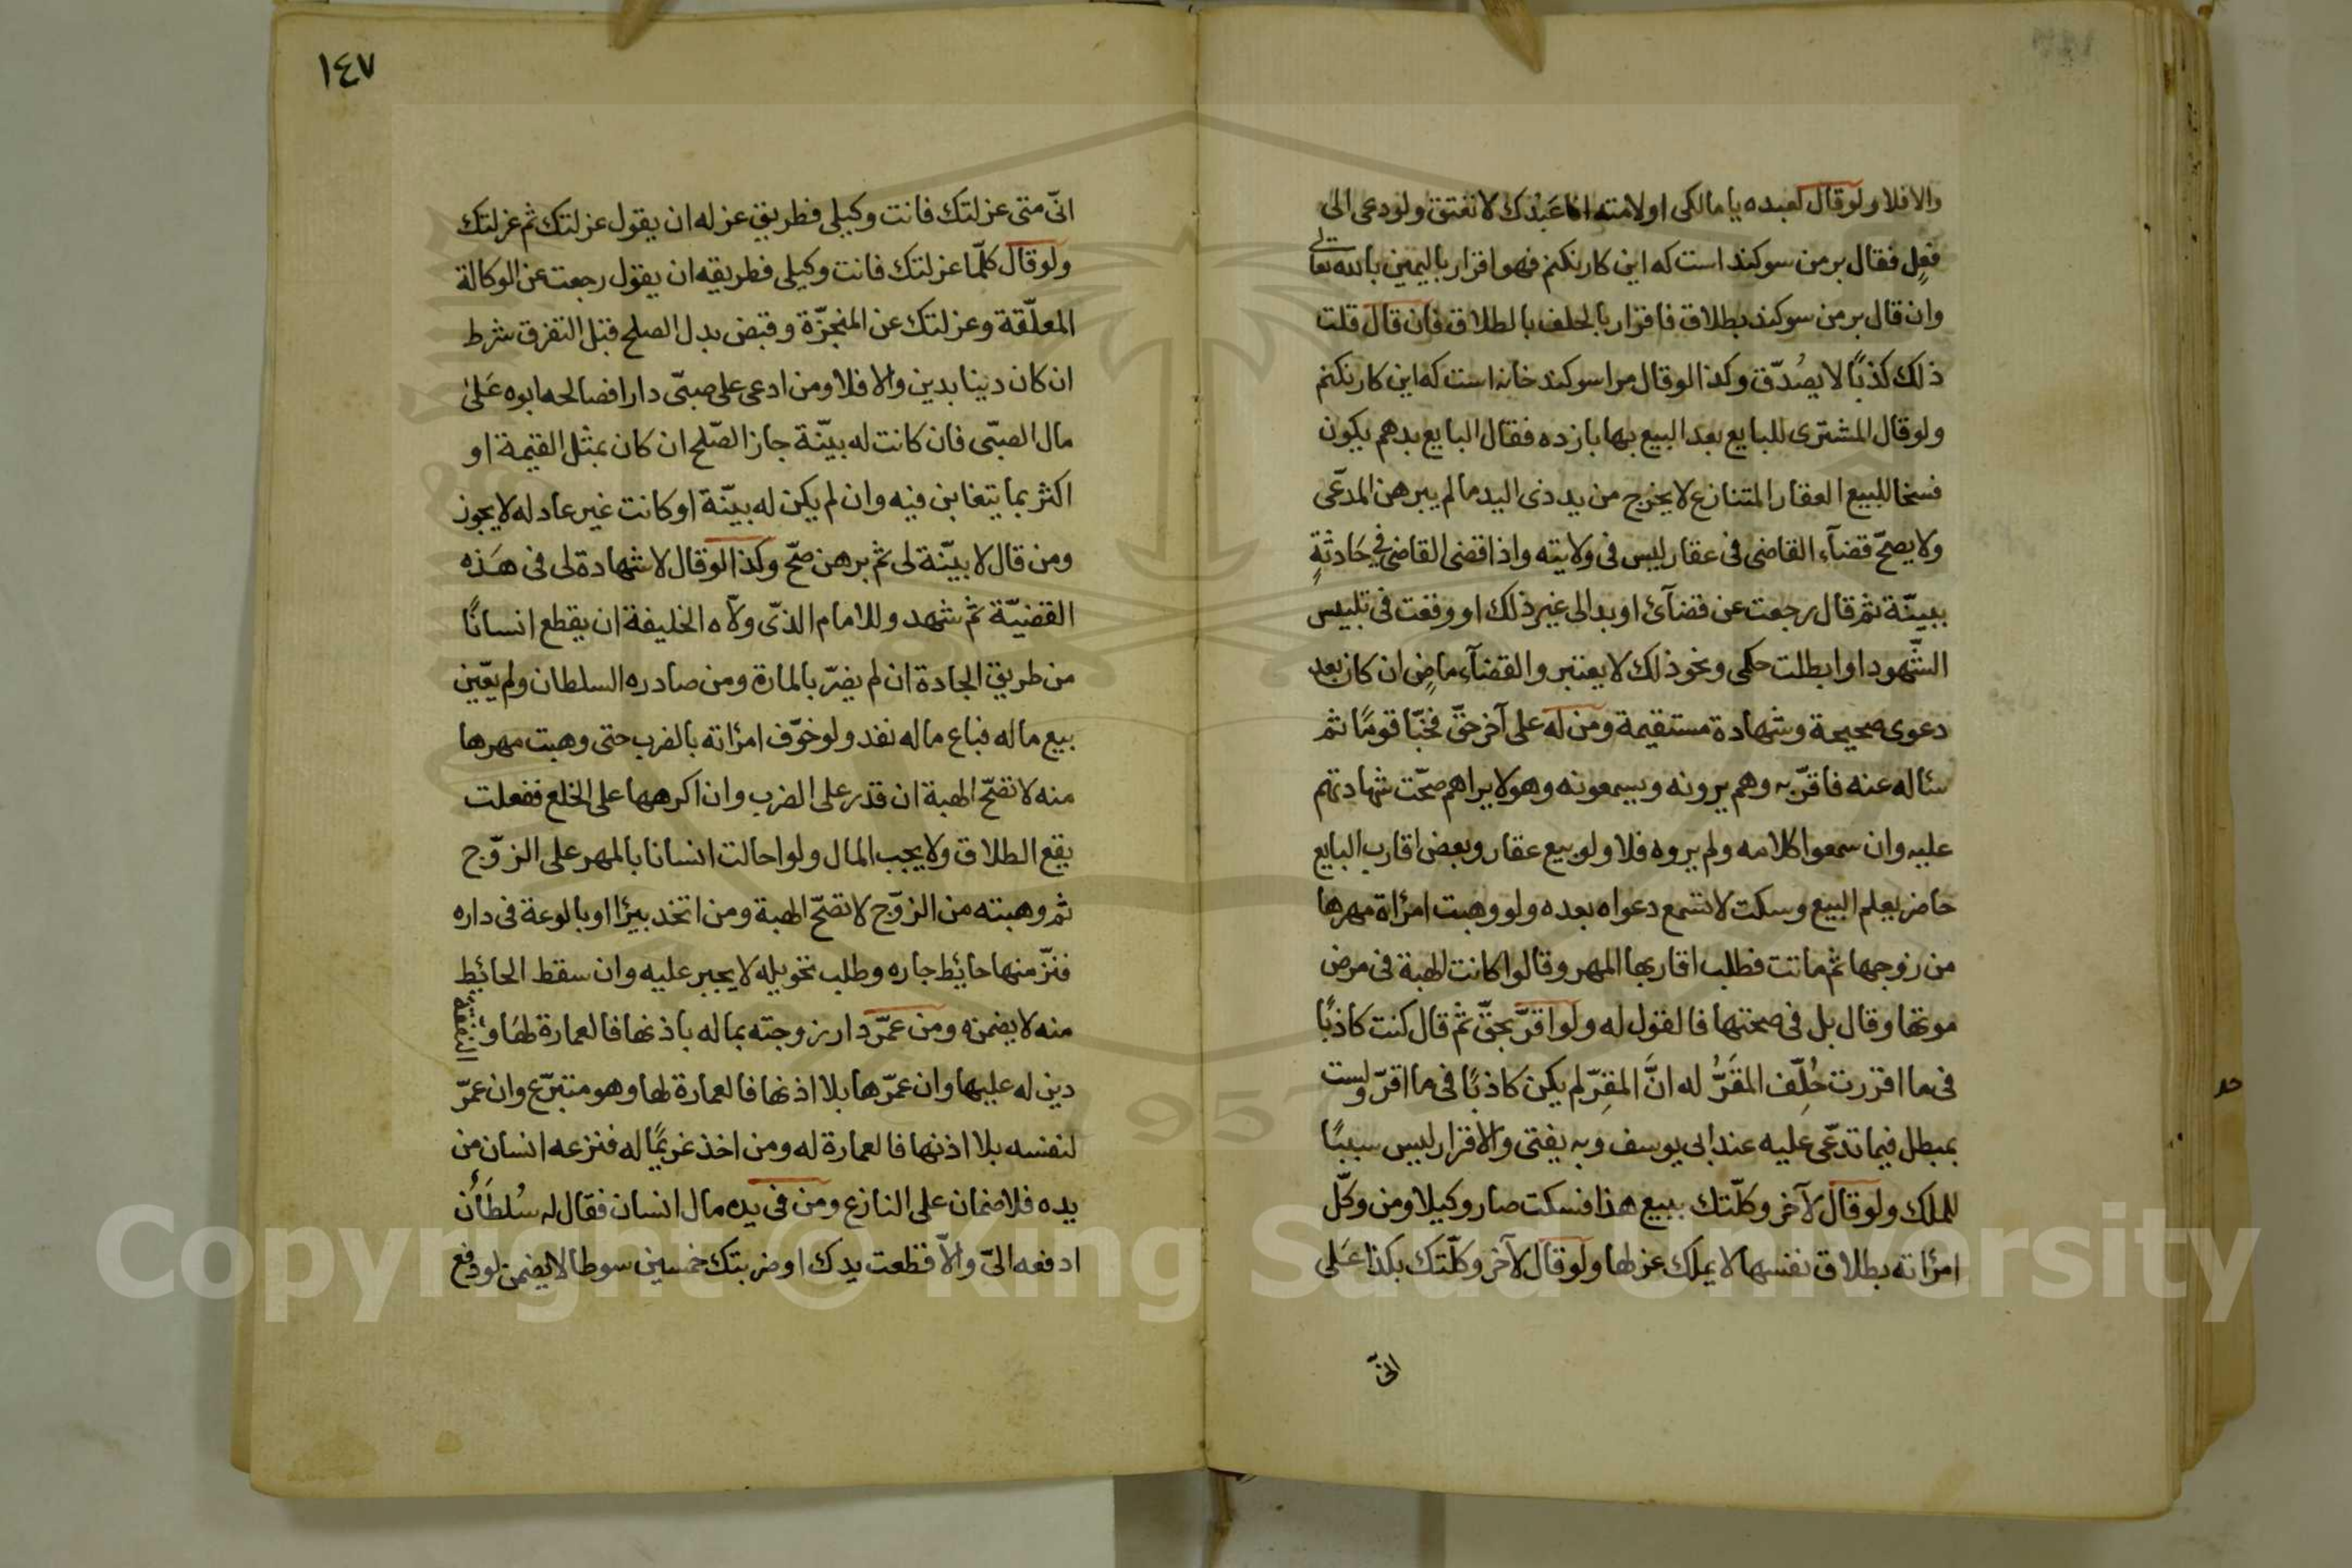 والا فلا ولو قال لعبده يا مالكى او لامته انا عبدك لا تعتق ولو دعى الى
فعل فقال بر من سوكند است كه اين كار نكنم فهو اقرار باليمين بالله تعالى
وان قال بر من سوكند بطلاق فاقرار بالحلف بالطلاق فان قال قلت
ذلك كذبًا لا يصُدّق وكذا لو قال مرا سوكند خانه است كه اين كار نكنم
ولو قال المشترى للبايع بعد البيع بها باز ده فقال البايع بدهم يكون
فسخا للبيع العقار المتنازع لا يخرج من يد ذى اليد ما لم يبرهن المدّعى
ولا يصحّ قضآء القاضى فى عقار ليس فى ولايته واذا قضى القاضى فى حَادثةٍ
ببينّة ثم قال رجعت عن قضآئ او بدا لى غير ذلك او وقعت فى تلبيس
الشّهود او ابطلت حكمى ونحو ذلك لا يعتبر والقضآء ماضٍ ان كان بعد
دعوى صحيحة وشهادة مستقيمة ومن له على آخر حقّ فخبّا قومًا ثم
سئاله عنه فاقرّ به وهم يرونه ويسمعونه وهو لا يراهم صحّت شهادتهم
عليه وان سمعوا كلامه ولم يروه فلا ولو بيع عقار وبعض اقارب البايع
حاضر يعلم البيع وسكت لا تسمع دعواه بعده ولو وهبت امرٔاة مهرها
من زوجها ثم ماتت فطلب اقاربها المهر وقالوا كانت الهبة فى مرض
موتها وقال بل فى صحتها فالقول له ولو اقرَّ بحقّ ثم قال كنت كاذبًا
فى ما اقررت حُلِّف المقَرُّ له انَّ المقِرّ لم يكن كاذبًا فى ما اقرّ ولست
بمبطل فيما تدّعى عليه عند ابى يوسف وبه يفتى والاقرار ليس سببًا
للملك ولو قال لآخر وكلّتك ببيع هذا فسكت صار وكيلا ومن وكّل
امرٔاته بطلاق نفسها لا يملك عزلها ولو قال لآخر وكلّتك بكذا عَلى
انّى
١٤٧
انّى متى عزلتك فانت وكيلى فطريق عزله ان يقول عزلتك ثم عزلتك
ولو قال كلّما عزلتك فانت وكيلى فطريقه ان يقول رجعت عن الوكالة
المعلّقة وعزلتك عن المنجزّة وقبض بدل الصلح قبل التفرق شرط
ان كان دينا بدين والا فلا ومن ادعى على صبىّ دارا فصالحه ابوه عَلىٰ
مال الصبىّ فان كانت له بيّنة جاز الصّلح ان كان بمثل القيمة او
اكثر بما يتغابن فيه وان لم يكن له بيّنة او كانت غير عادله لا يجوز
ومن قال لا بيّنة لى ثم برهن صحّ وكذا لو قال لا شهادة لى فى هَذه
القضيّة ثم شهد وللامام الذّى ولآه الخليفة ان يقطع انسانًا
من طريق الجادة ان لم يضرّ بالمارة ومن صادره السلطان ولم يعّين
بيع ماله فباع ماله نفد ولو خوّف امرٔاته بالضرب حتى وهبت مهرها
منه لا تصّح الهبة ان قدر على الضرب وان اكرهها على الخلع ففعلت
يقع الطلاق ولا يجب المال ولو احالت انسانا بالمهر على الزّوج
ثم وهبته من الزّوج لا تصّح الهبة ومن اتخد بئرًا او بالوعة فى داره
فنزّ منها حائِط جاره وطلب تحويله لا يجبر عليه وان سقط الحائِط
منه لا يضمنه ومن عمّر دار زوجته بماله باذنها فالعمارة لهَا والنفقة
دين له عليها وان عمّرها بلا اذنها فالعمارة لها وهو متبرّع وان عمّر
لنفسه بلا اذنها فالعمارة له ومن اخذ غريمًا له فنزعه انسان من
يده فلا ضمان على النازع ومن فى يده مال انسان فقال له سُلطان
ادفعه الىّ والاّ قطعت يدك او ضربتك خمسين سوطا لا يضمن لو دفع